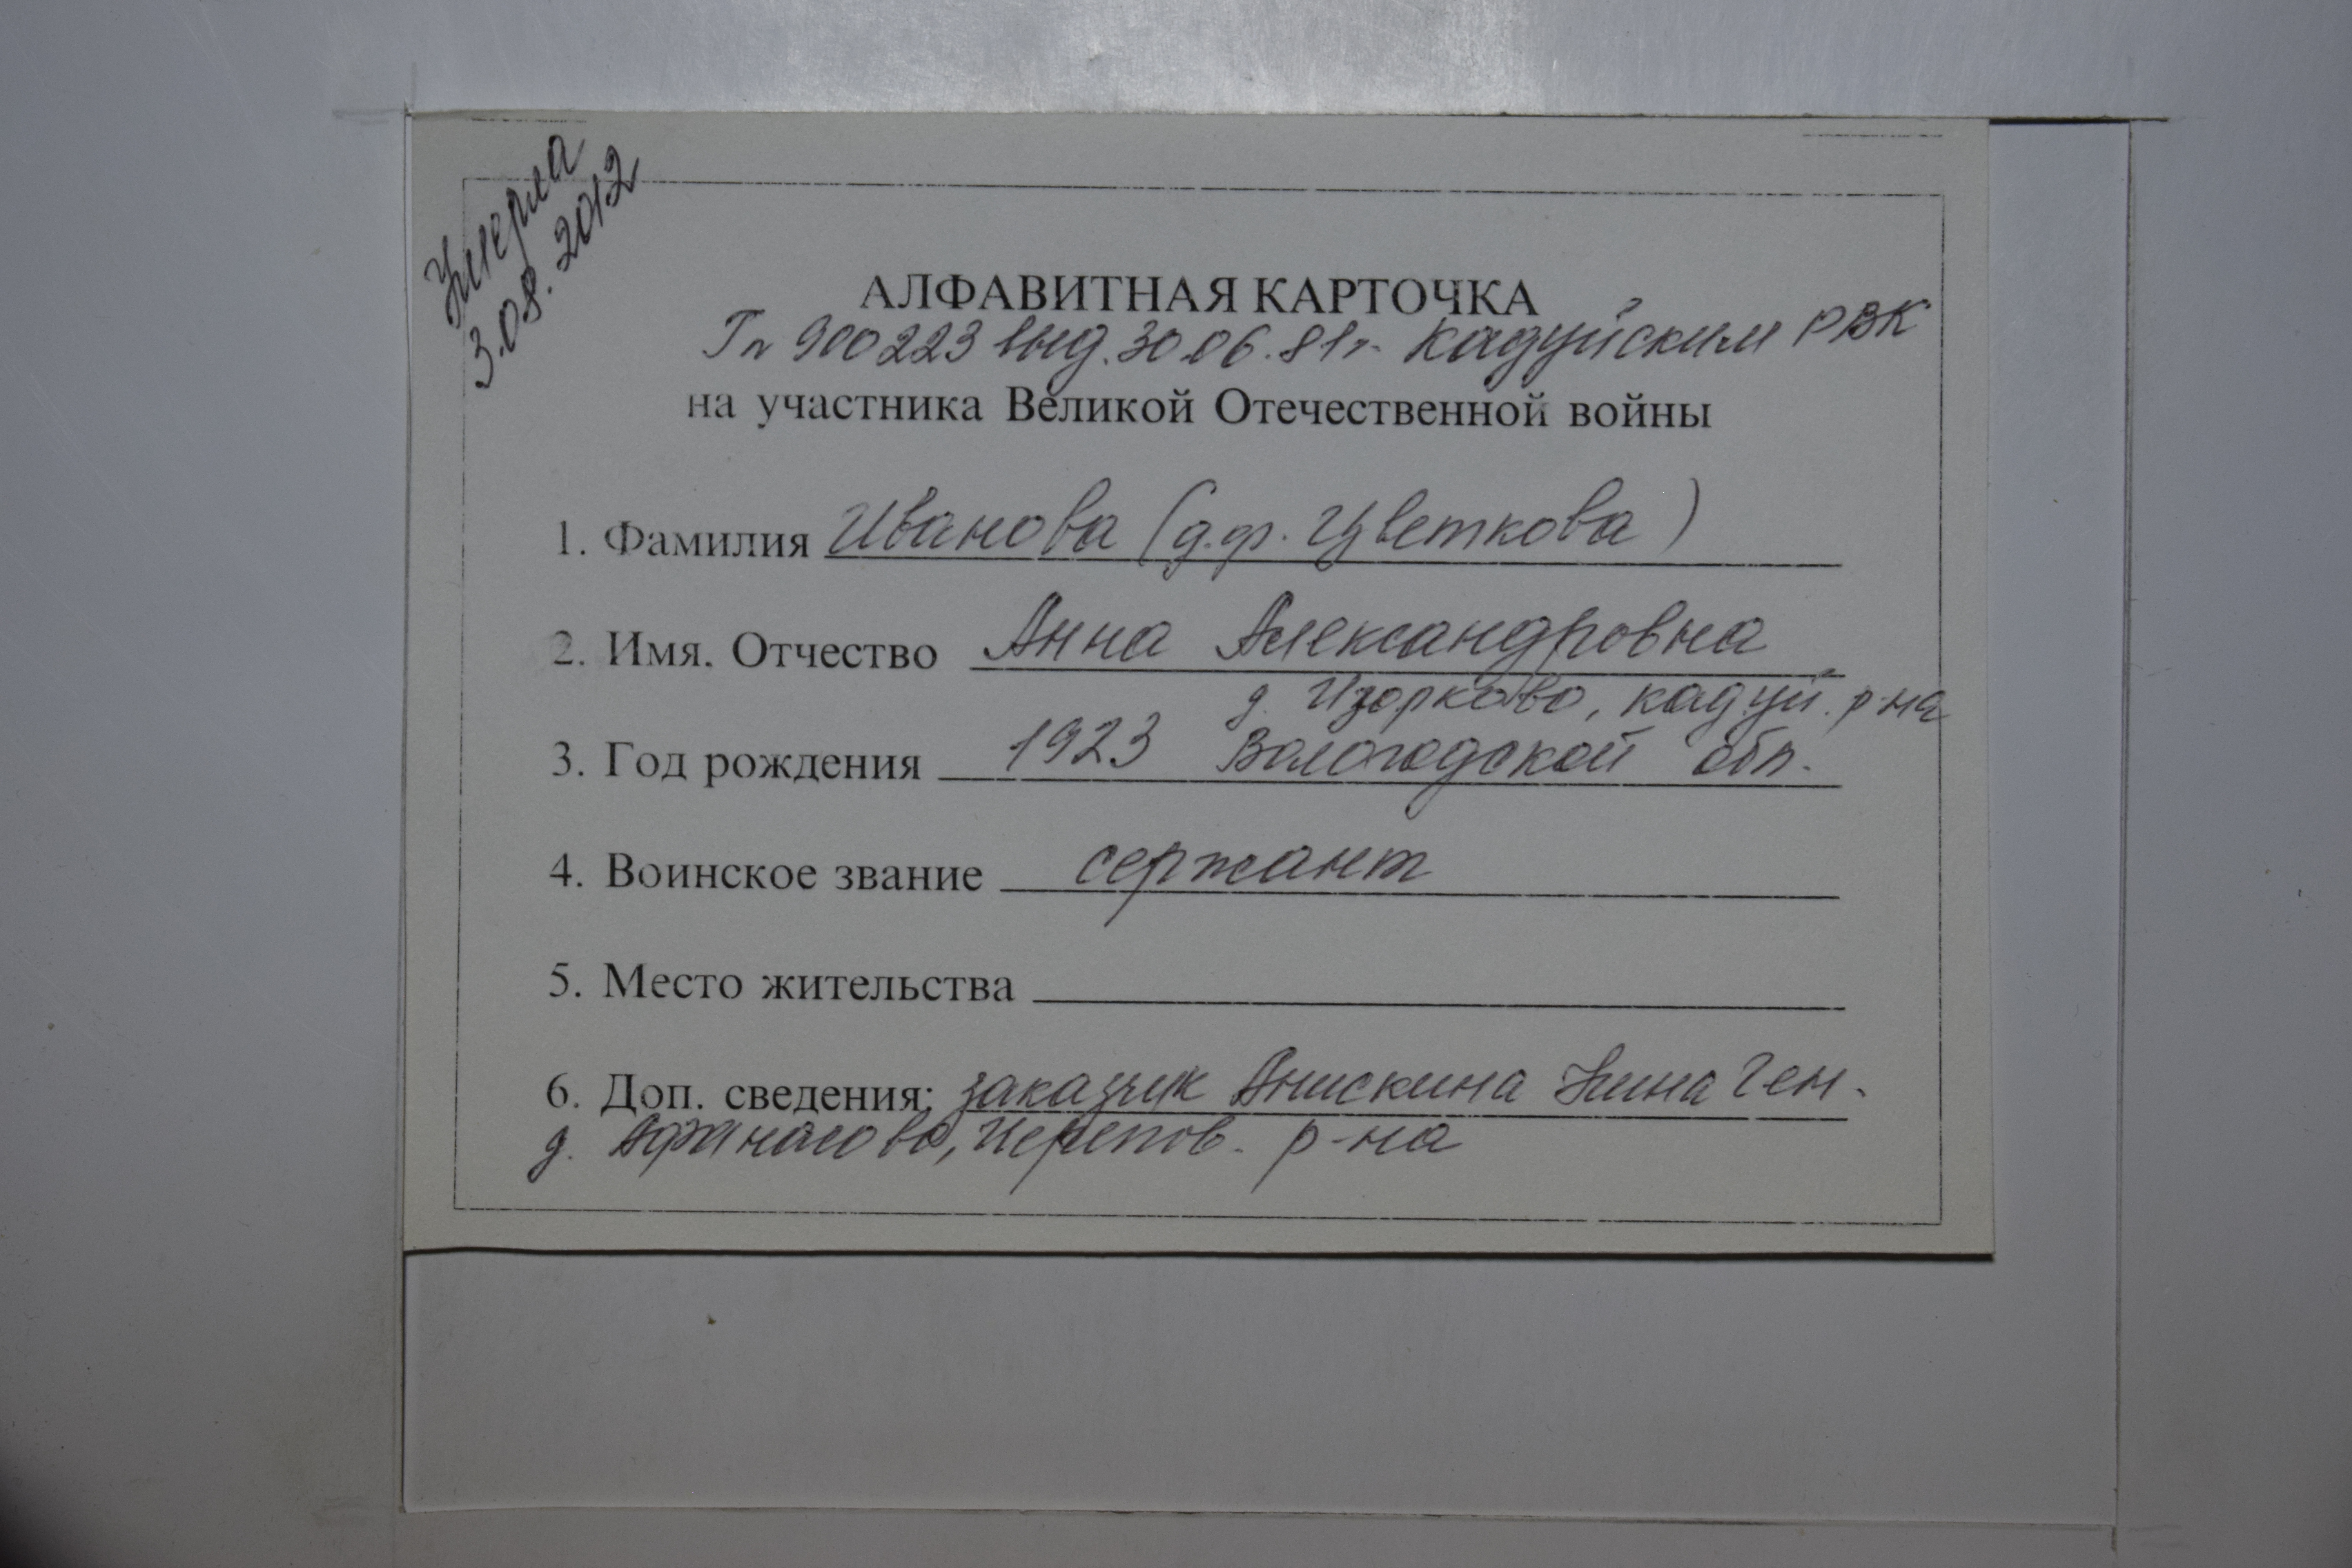 Умерла
3.08.2012
АЛФАВИТНАЯ КАРТОЧКА
Гп 900223 выд. 30.06.81г. Кадуйским РВК
на участника Великой Отечественной войны
1. Фамилия Иванова (д.ф. Цветкова)
2. Имя. Отчество Анна Александровна
д. Изорково, Кадуй. р-на
3. Год рождения 1923 Вологодской обл.
4. Воинское звание сержант
5. Место жительства
6. Доп. сведения: заказчик Анискина Нина Ген.
д. Афанасово, Черепов. р-на